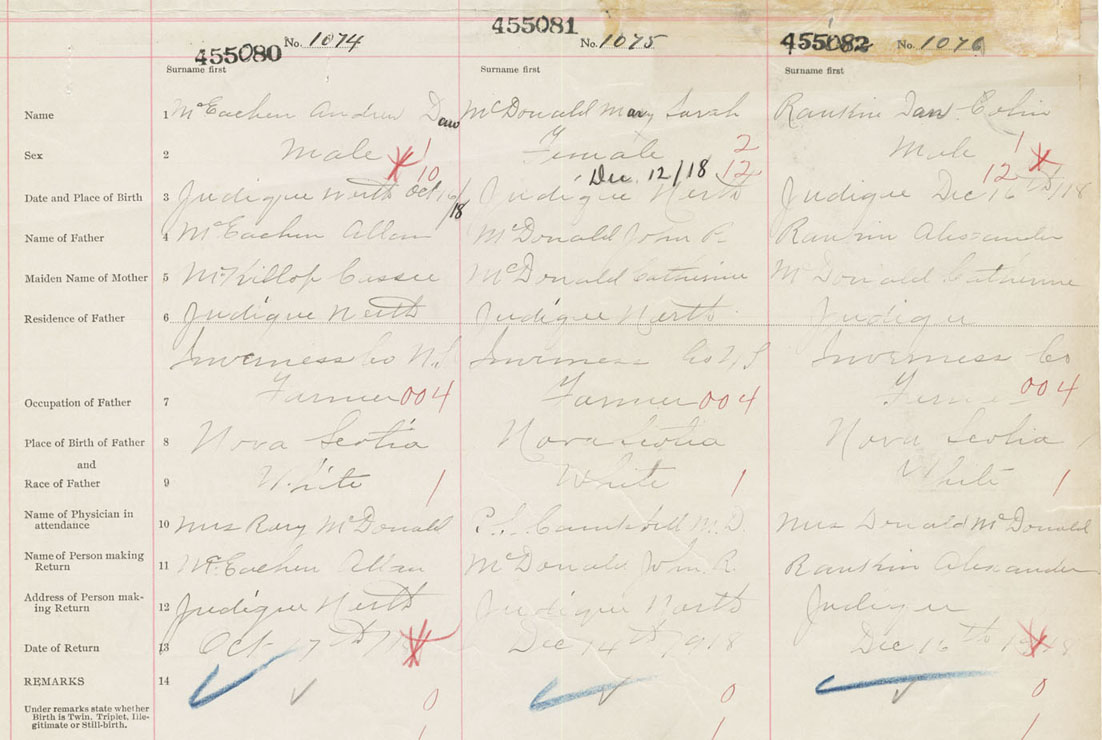 455080 No. 1074 455081 No. 1075 455082 No. 1076
Surname first Surname first Surname first
Name 1 McEachen Andrew Dan McDonald Mary Sarah Rankin Dan Colin
Sex 2 Male 1 Female 2 Male 1
10 Dec. 12/18 12 12
Date and Place of Birth 3 Judique North Oct 16/18 Judique North Judique Dec 16th/18
Name of Father 4 McEachen Allan McDonald John R. Rankin Alexander
Maiden Name of Mother 5 McKillop Cassie McDonald Catherine McDonald Catherine
Residence of Father 6 Judique North Judique North Judique
Inverness Co N.S Inverness Co N.S Inverness Co
Occupation of Father 7 Farmer 004 Farmer 004 Farmer 004
Place of Birth of Father 8 Nova Scotia Nova Scotia Nova Scotia
and
Race of Father 9 White 1 White 1 White 1
Name of Physician in
attendance 10 Mrs Rory McDonald Campbell M.D. Mrs Donald McDonald
Name of Person making
Return 11 McEachen Allan McDonald John R. Rankin Alexander
Address of Person mak-
ing Return 12 Judique North Judique North Judique
Date of Return 13 Oct 17th Dec 14th 1918 Dec 16th 1918
REMARKS 14
0 0 0
Under remarks state whether
Birth is Twin, Triplet, Ille-
gitimate or Still-birth.
1 1 1